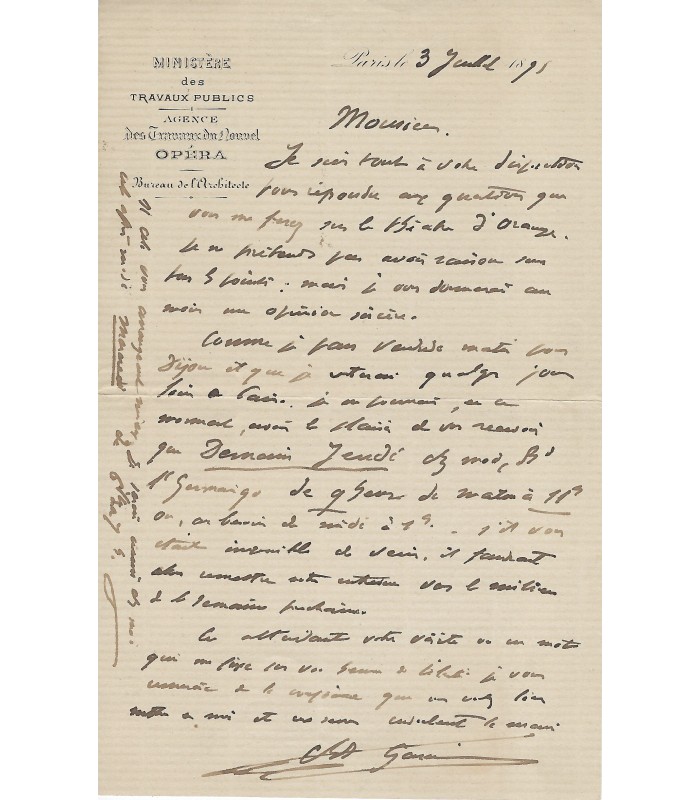 MINISTÈRE
des
TRAVAUX PUBLICS
AGENCE
des Travaux du Nouvel
OPÉRA
Bureau de l'Architecte
Paris le 3 Juillet 1895
Monsieur.
Je suis tout à votre disposition
pour répondre aux questions que
vous me ferez sur le théâtre d'Orange.
Je ne prétends pas avoir raison sur
tous points; mais je vous donnerai au
moins une opinion sincère.
Comme je pars Vendredi matin pour
Dijon et que je resterai quelques jours
loin de Paris, je ne pourrais, en ce
moment, avoir le plaisir de vous recevoir
que Demain Jeudi chez moi, Bd
St Germain 90 de 9 heures du matin à 11h
ou, au besoin de midi à 1h. S'il vous
était impossible de venir, il faudrait
alors remettre notre entretien vers le milieu
de la semaine prochaine.
En attendant votre visite ou un mot
qui me fixe sur vos heures de liberté je vous
remercie de la confiance que vous voulez bien
mettre en moi et vous
Ch Garnier
Si cela vous arrangeait mieux je serai aussi chez moi
cet après midi Mercredi de